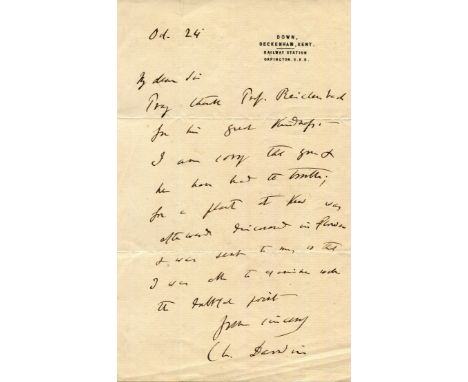 Oct. 24
DOWN,
BECKENHAM, KENT.
RAILWAY STATION
ORPINGTON. S.E.R.
My dear Sir
Pray thank Prof. Reichenbach
for his great kindness.—
I am sorry that you &
he have had the trouble;
for a plant at Kew was
afterwards discovered in flower
& was sent to me, so that
I was able to examine
the doubtful point
Yours sincerely
Ch. Darwin